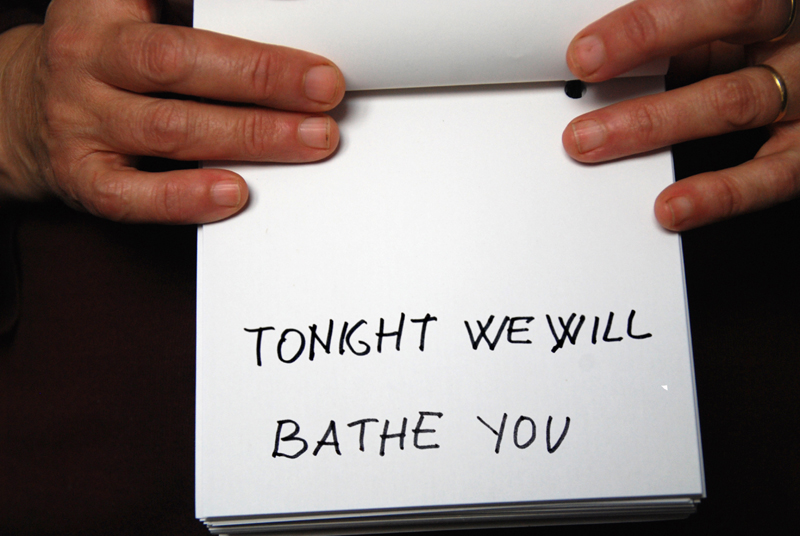 TONIGHT WE WILL
BATHE YOU